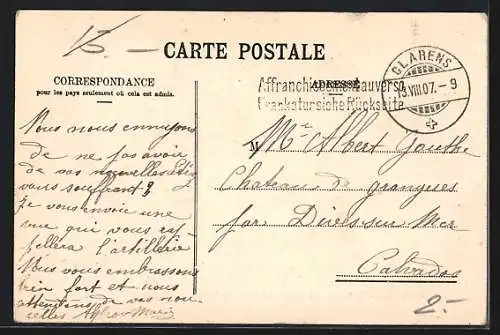 15.-
CARTE POSTALE
CORRESPONDANCE
pour les pays seulement où cela est admis.
ADRESSE
Affranchissement au verso
Frankatur siehe Rückseite
CLARENS
13 VIII.07.-9
Vous nous ennuyons
de ne pas avoir
de vos nouvelles
vous souffrant?
Je vous envoie une
vue qui vous rap
pellera l'artillerie
Nous vous embrassons
bien fort et nous
attendons de vos nou-
velles Marie
M
Mr Albert
Chateau de grangues
par Dives-sur-Mer
Calvados
2-